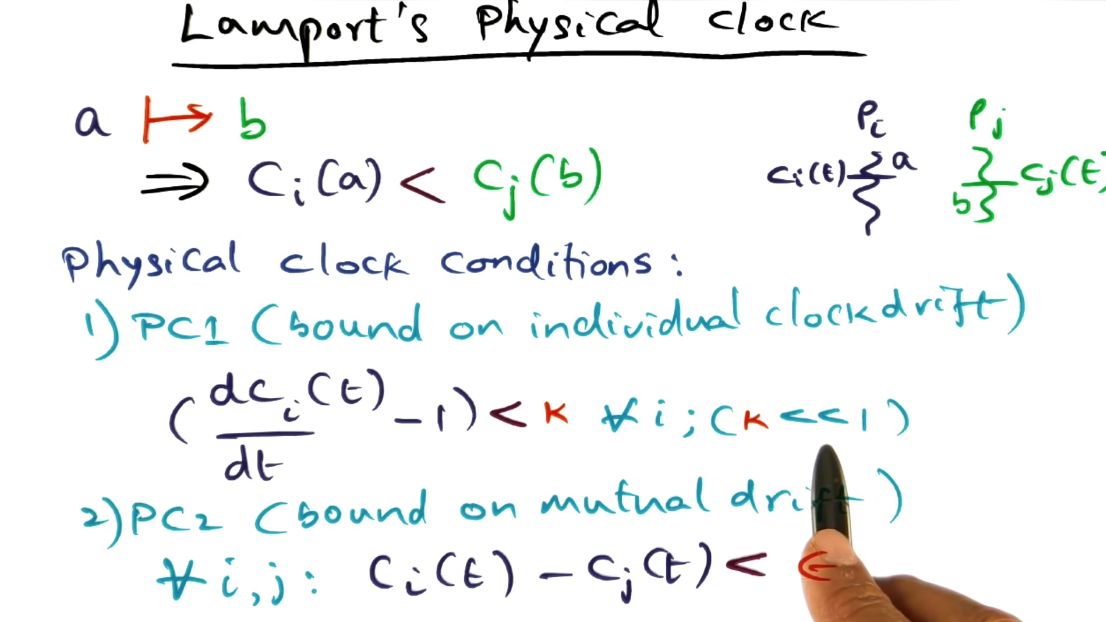 Lamport's Physical Clock
a ↦ b
⇒ Ci(a) < Cj(b)
Pi Pj
Ci(t) a
b Cj(t)
Physical clock conditions:
1) PC1 (bound on individual clock drift)
(dCi(t)/dt - 1) < K ∀i; (K << 1)
2) PC2 (bound on mutual drift)
∀i,j: Ci(t) - Cj(t) < ε